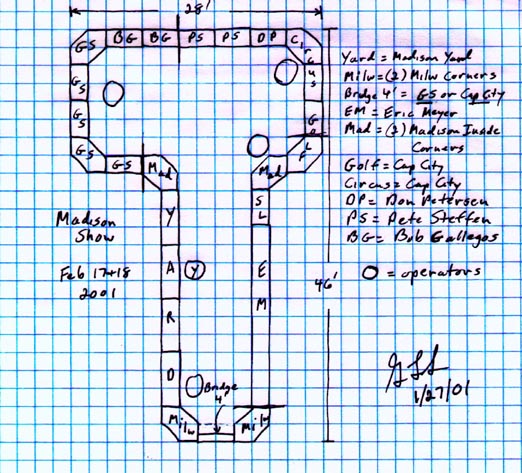 28'
GS BG BG PS PS DP Circus
GS
GS
GS GS Mad
Go LF
Mad
SL
YARD
Y
EM
46'
Bridge
4'
Milw Milw
Madison
Show
Feb 17+18
2001
Yard = Madison Yard
Milw = (2) Milw Corners
Bridge 4' = GS or Cap City
EM = Eric Meyer
Mad = (2) Madison Inside
Corners
Golf = Cap City
Circus = Cap City
DP = Don Petersen
PS = Pete Steffen
BG = Bob Gallegos
= operators
1/27/01